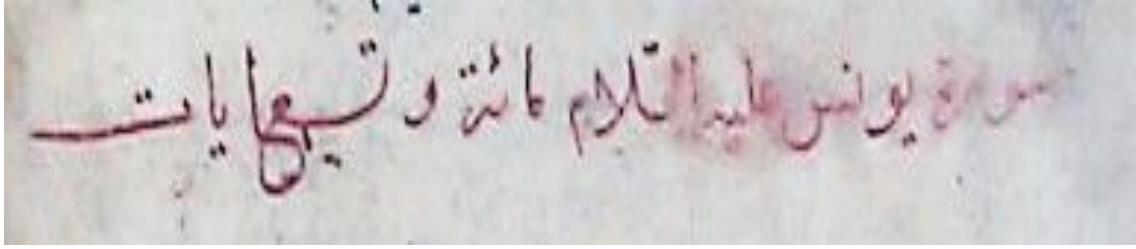 سورة يونس عليه السلام مائة وتسع ايات